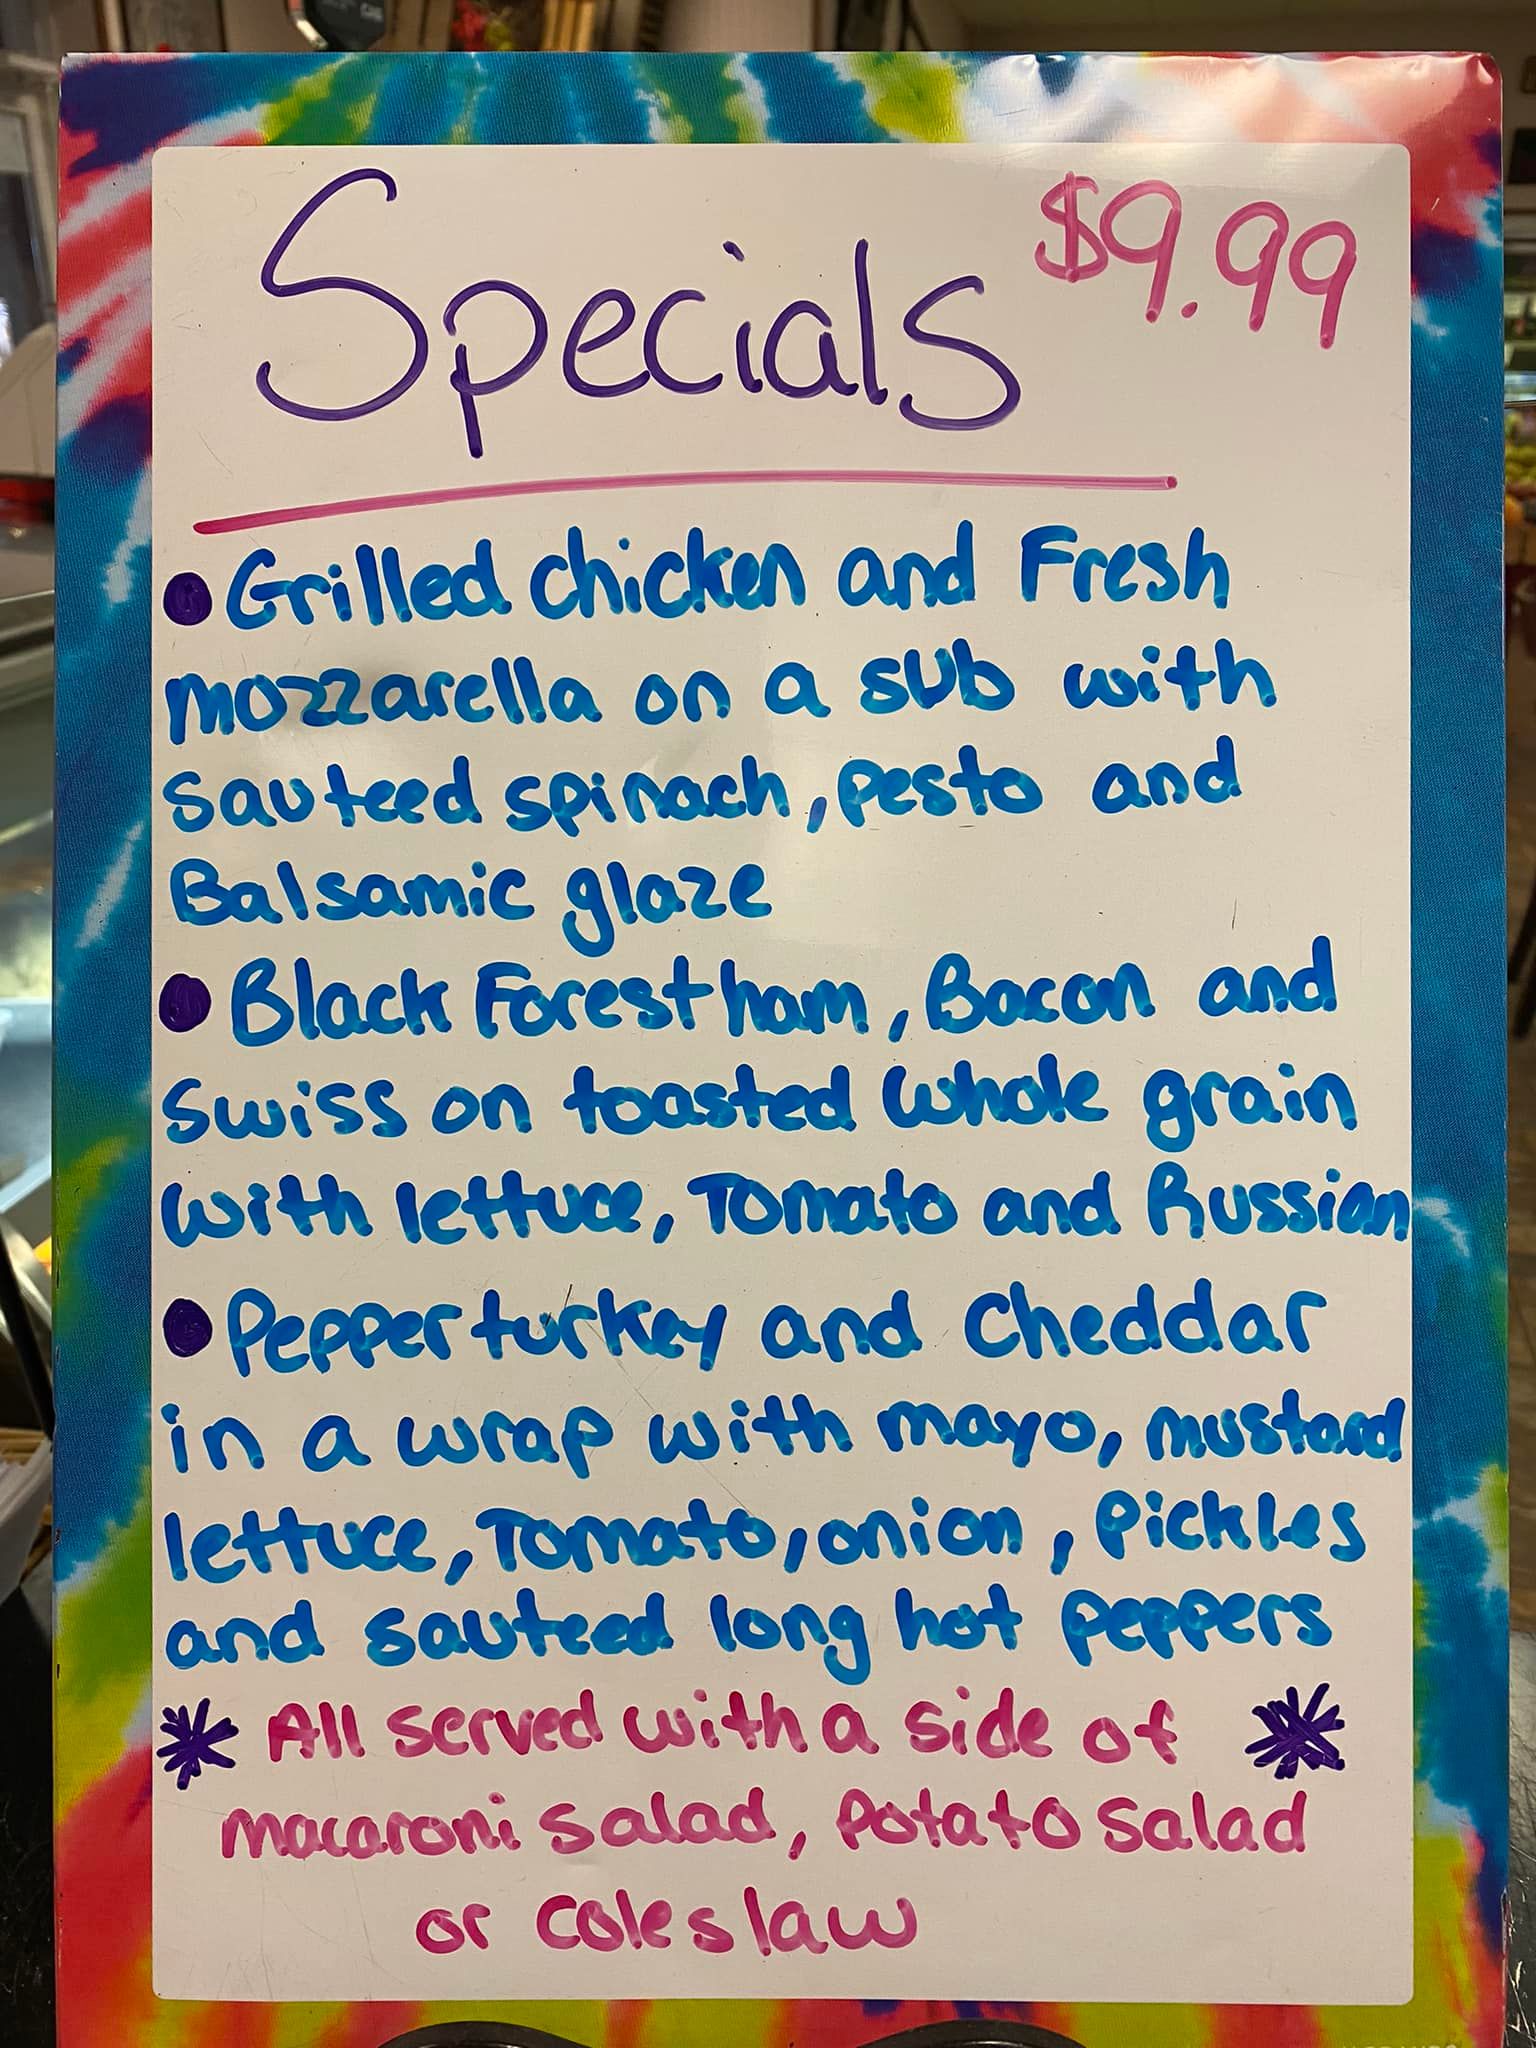 Specials $9.99
Grilled chicken and Fresh
mozzarella on a sub with
Sauteed spinach, pesto and
Balsamic glaze
Black Forest ham, Bacon and
Swiss on toasted whole grain
with lettuce, Tomato and Russian
Pepper turkey and cheddar
in a wrap with mayo, mustard
lettuce, Tomato, onion, Pickles
and sauteed long hot peppers
* All served with a side of *
macaroni salad, Potato Salad
or coleslaw